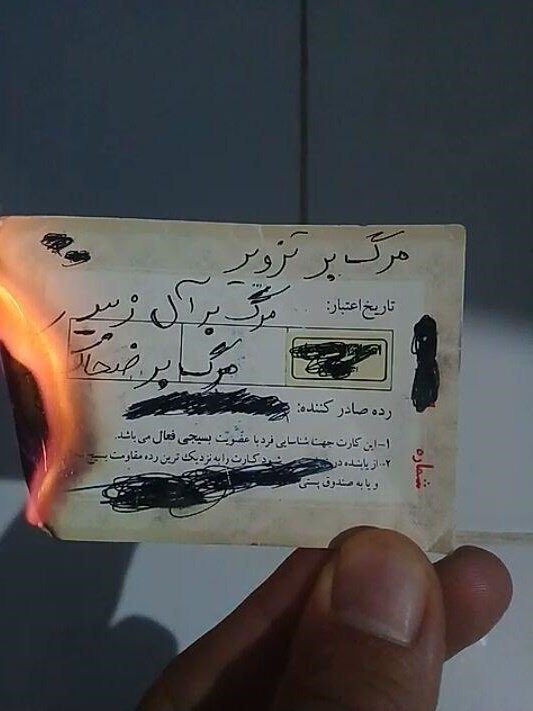 مرگ بر تزویر
تاریخ اعتبار:
مرگ بر آل زبیر
مرگ بر ضحاک
رده صادر کننده:
۱- این کارت جهت شناسایی فرد با عضویت بسیجی فعال می باشد.
۲- از یابنده در شود کارت را به نزدیک ترین رده مقاومت بسیج
و یا به صندوق پستی
شماره